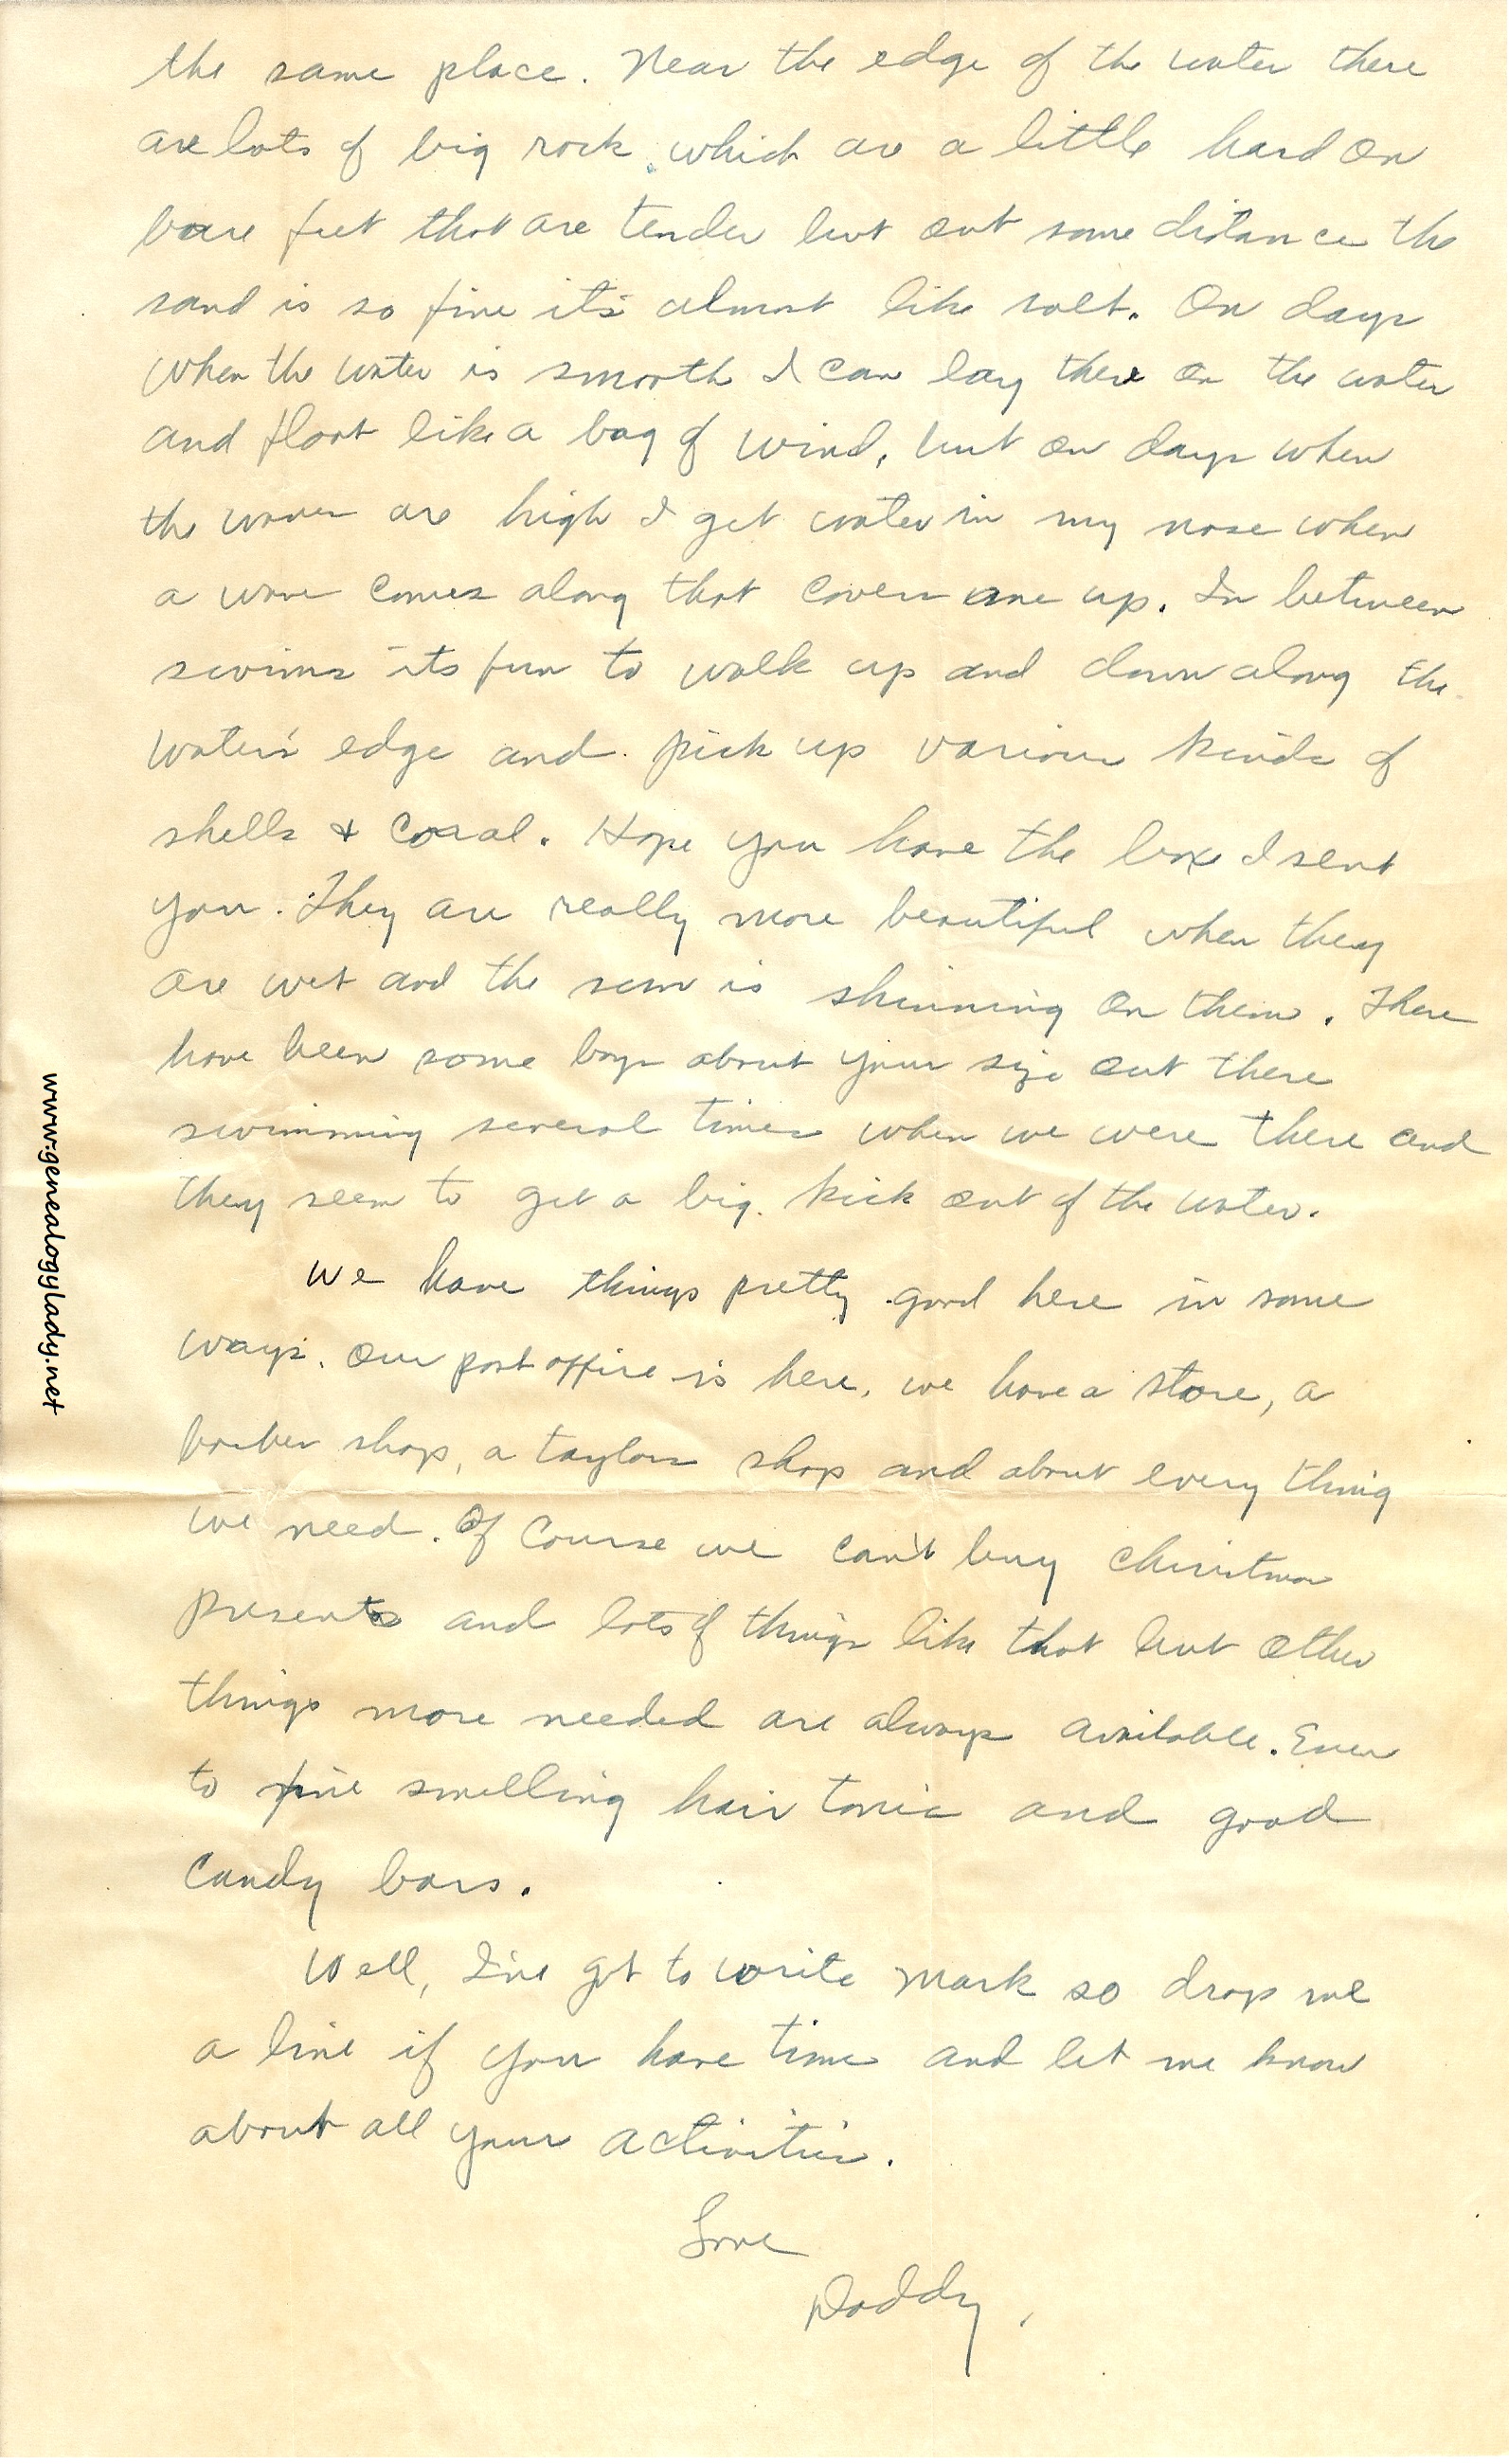 the same place. Near the edge of the water there
are lots of big rock which are a little hard on
bare feet that are tender but out some distance the
sand is so fine it's almost like salt. On days
when the water is smooth I can lay there on the water
and float like a bag of wind, but on days when
the waves are high I get water in my nose when
a wave comes along that covers me up. In between
swims its fun to walk up and down along the
water's edge and pick up various kinds of
shells & coral. Hope you have the box I sent
you. They are really more beautiful when they
are wet and the sun is shinning on them. There
have been some boys about your size out there
swimming several times when we were there and
they seem to get a big kick out of the water.
We have things pretty good here in some
ways. Our post office is here, we have a store, a
barber shop, a taylors shop and about every thing
we need. Of course we can't buy Christmas
presents and lots of things like that but other
things more needed are always available. Even
to fine smelling hair tonic and good
candy bars.
Well, I've got to write Mark so drop me
a line if you have time and let me know
about all your activities.
Love
Daddy.
www.genealogylady.net